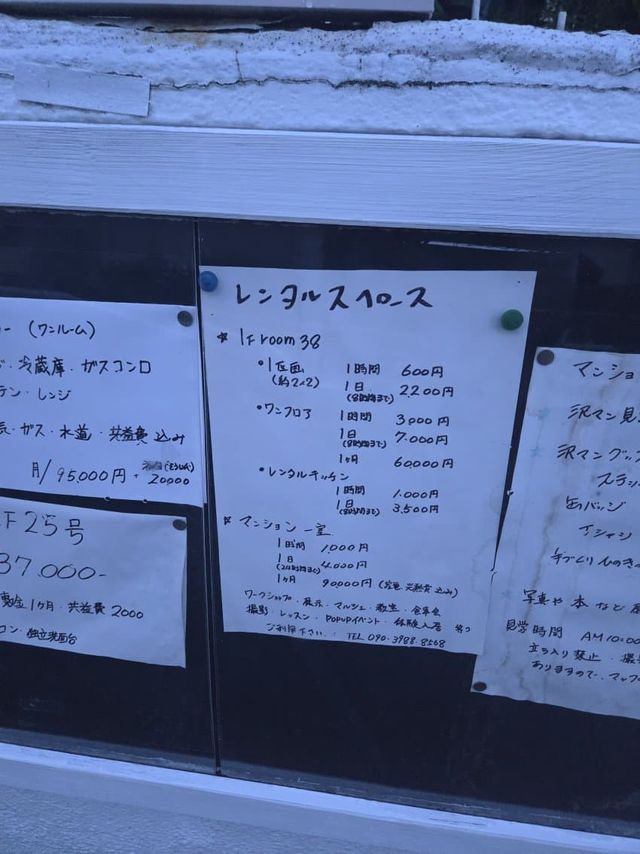 ー (ワンルーム)
・冷蔵庫・ガスコンロ
テン・レンジ
ガス・水道・共益費込み
月/95,000円+
20000
F25号
37.000-
1ヶ月・共益費 2000
コン・独立洗面台
レンタルスペース
★ 1F room38
・1区画 1時間 600円
(約2×2) 1日 2,200円
(8時間まで)
・ワンフロア 1時間 3,000円
1日 7,000円
(8時間まで)
1ヶ月 60,000円
・レンタルキッチン
1時間 1,000円
1日 3,500円
(8時間まで)
★ マンション一室
1時間 1,000円
1日 4,000円
(24時間まで)
1ヶ月 90,000円 (光熱費込み)
ワークショップ・展示・マルシェ・教室・食事会
撮影・レッスン・POPUPイベント・体験入居 等々
ご利用下さい。 TEL 090-3988-8568
マンショ
沢マン見
沢マングッ
ステッ
缶バッジ
Tシャツ
手づくりひのきの
写真や本など
見学時間 AM10:00
立ち入り禁止・撮
ありますので、マップ